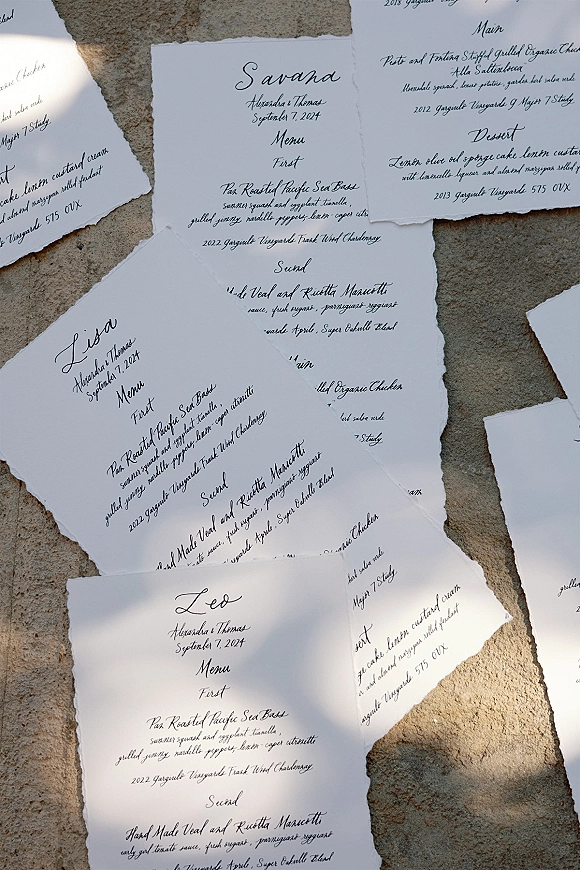 Chicken
salsa verde
Major 7 Study
cake lemon custard cream
and almond marzipan rolled fondant
Vineyards 575 OVX
Main
Pesto and Fontina Stuffed Grilled Organic Chicken
Alla Saltimbocca
spinach, lemon potatoes, garden herb salsa verde
2012 Gargiulo Vineyards G Major 7 Study
Dessert
Lemon olive oil sponge cake lemon custard
with limoncello liqueur and almond marzipan rolled fondant
2013 Gargiulo Vineyards 575 OVX
Savana
Alexandra & Thomas
September 7, 2024
Menu
First
Pan Roasted Pacific Sea Bass
summer squash and eggplant tianella,
grilled jimmy nardello peppers, lemon-caper
2022 Gargiulo Vineyards Frank Wood Chardonnay
Second
Made Veal and Ricotta Manicotti
sauce, fresh oregano, parmigiano reggiano
Vineyards Aprile, Super Oakville Blend
Main
Grilled Organic Chicken
herb salsa verde
7 Study
Lisa
Alexandra & Thomas
September 7, 2024
Menu
First
Pan Roasted Pacific Sea Bass
summer squash and eggplant tianella,
grilled jimmy nardello peppers, lemon-caper citronette
2022 Gargiulo Vineyards Frank Wood Chardonnay
Second
Hand Made Veal and Ricotta Manicotti
tomato sauce, fresh oregano, parmigiano reggiano
Vineyards Aprile, Super Oakville Blend
Organic Chicken
herb salsa verde
Major 7 Study
cake lemon custard cream
and almond marzipan rolled fondant
Gargiulo Vineyards 575 OVX
Leo
Alexandra & Thomas
September 7, 2024
Menu
First
Pan Roasted Pacific Sea Bass
summer squash and eggplant tianella,
grilled jimmy nardello peppers, lemon-caper citronette
2022 Gargiulo Vineyards Frank Wood Chardonnay
Second
Hand Made Veal and Ricotta Manicotti
early girl tomato sauce, fresh oregano, parmigiano reggiano
Vineyards Aprile, Super Oakville Blend